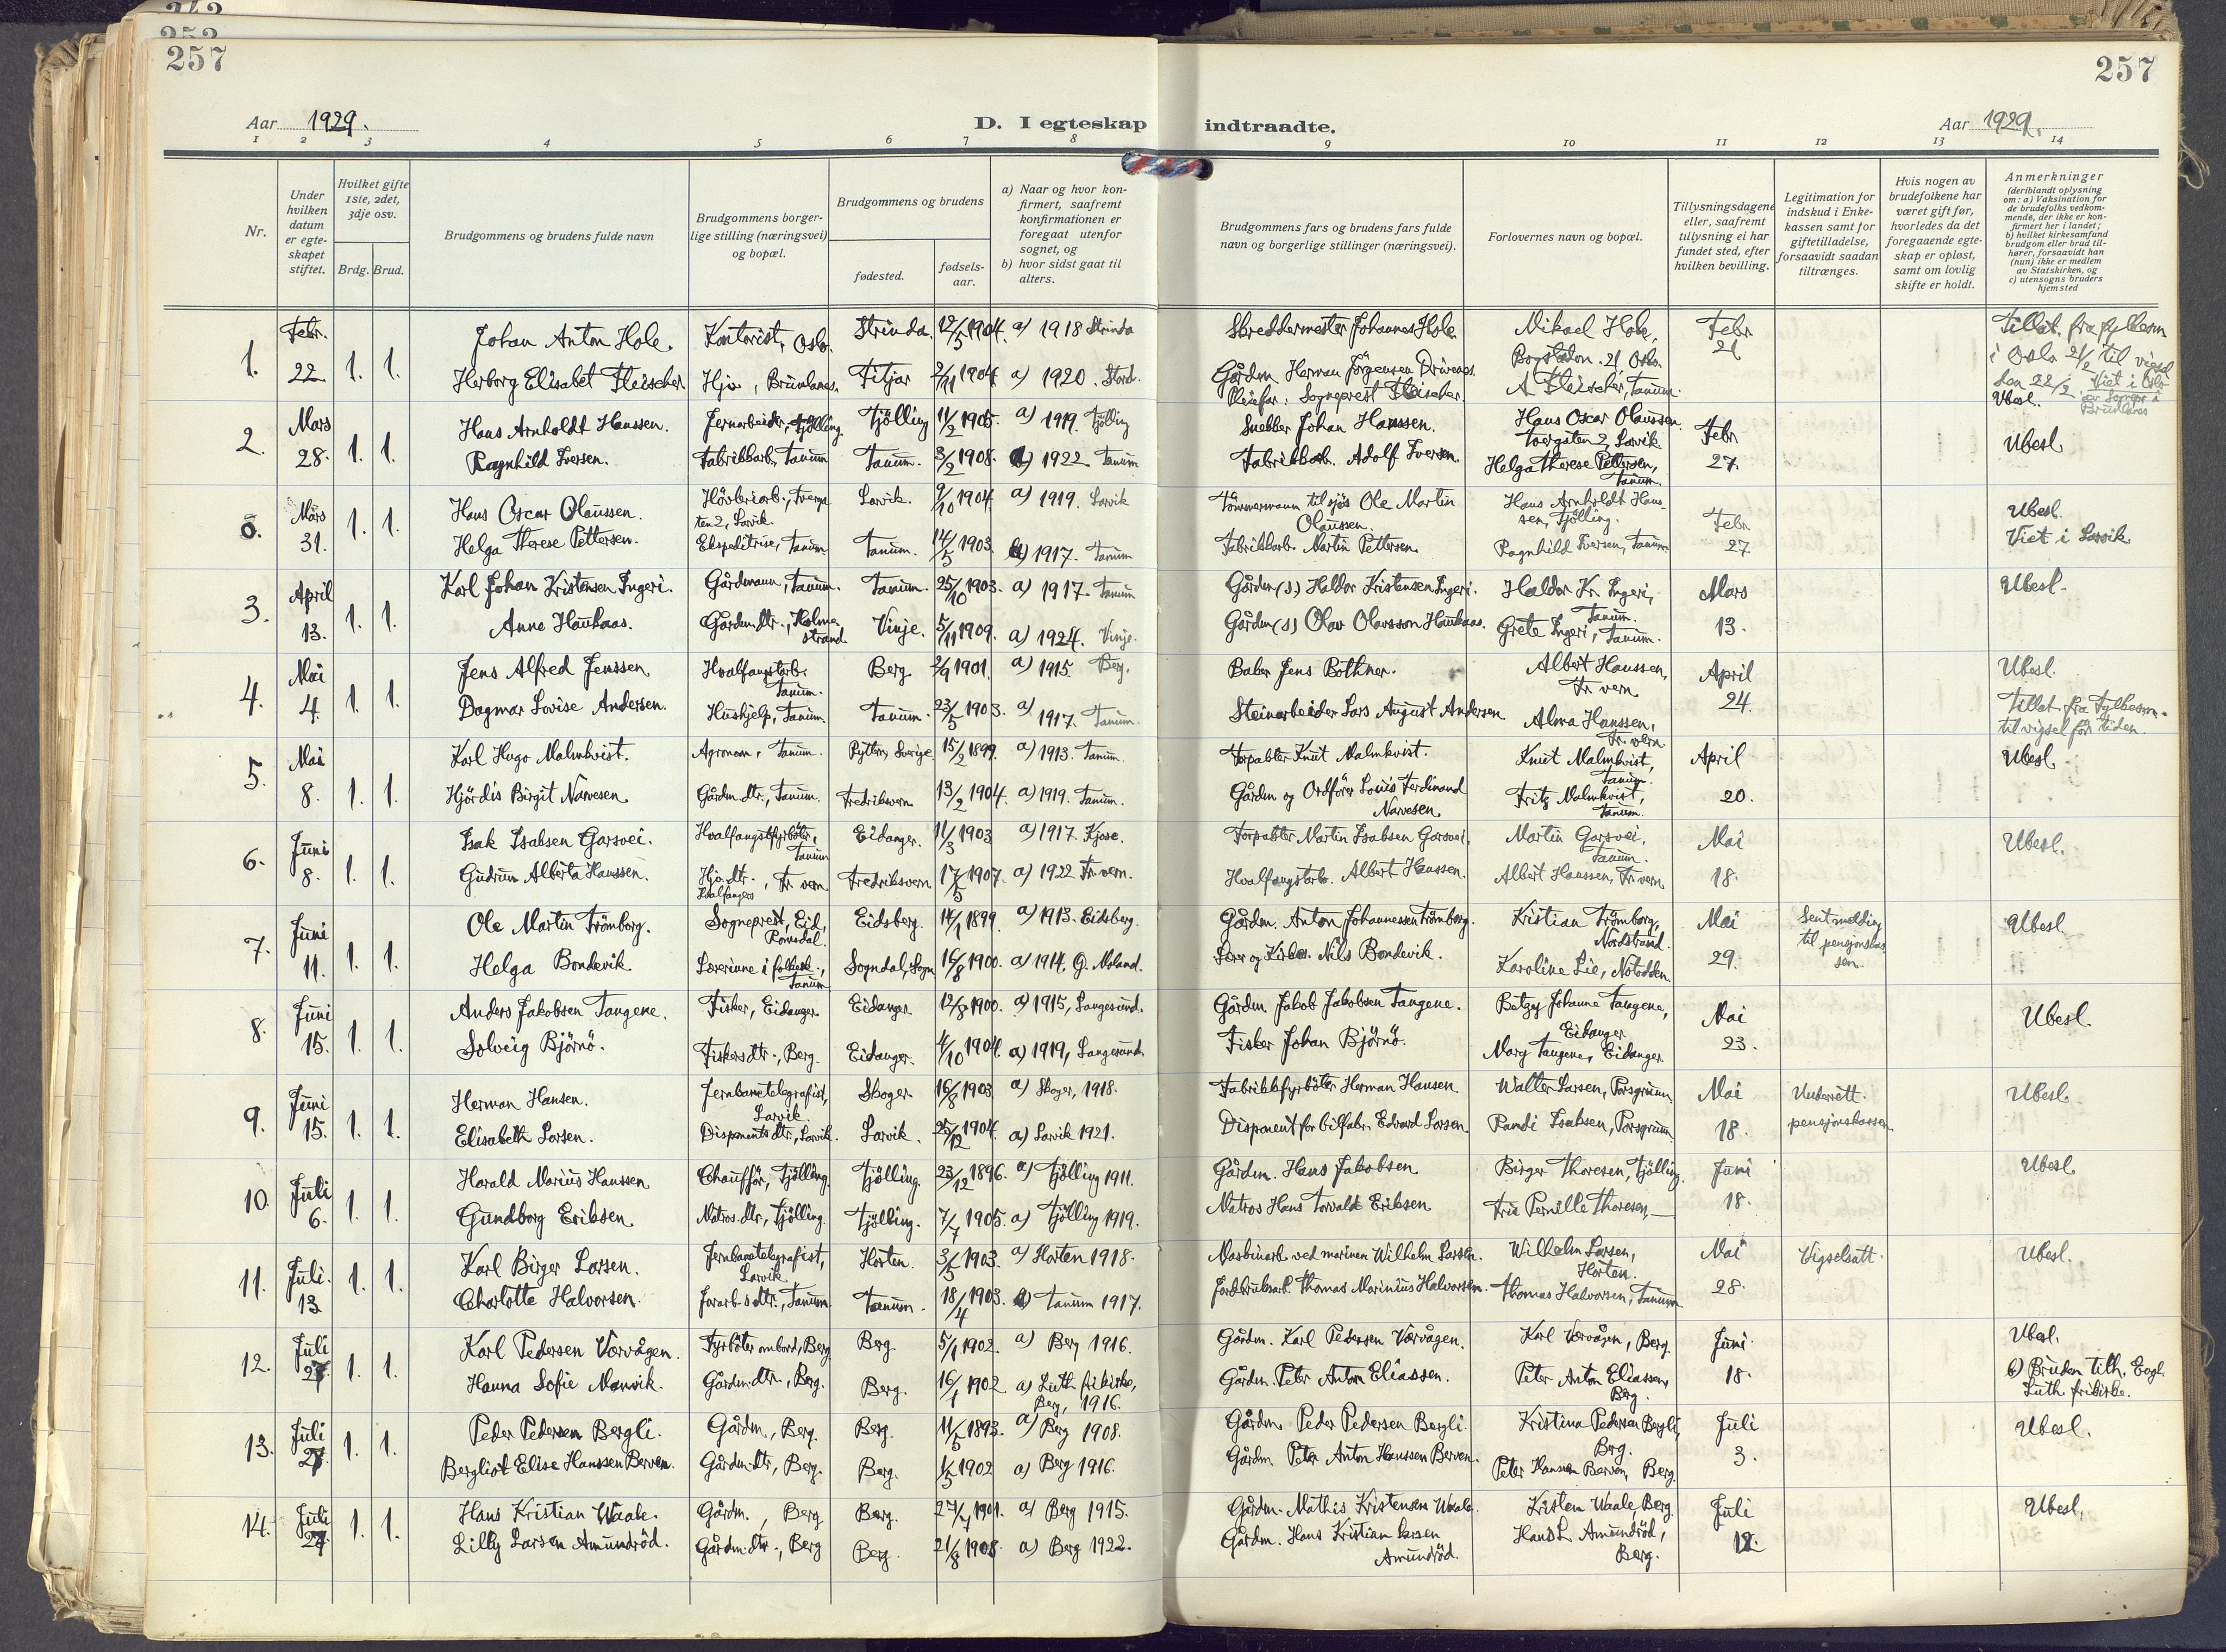 242
252
257
257
Aar 1929.
D. I egteskap
indtraadte.
Aar 1929.
1 2 3 4 5 6 7 8 9 10 11 12 13 14
Nr.
Under hvilken datum er egteskapet stiftet.
Hvilket gifte 1ste, 2det, 3dje osv.
Brdg. Brud.
Brudgommens og brudens fulde navn
Brudgommens borgerlige stilling (næringsvei) og bopæl.
Brudgommens og brudens
fødested.
fødselsaar.
a) Naar og hvor konfirmert, saafremt konfirmationen er foregaat utenfor sognet, og
b) hvor sidst gaat til alters.
Brudgommens fars og brudens fars fulde navn og borgerlige stillinger (næringsvei).
Forlovernes navn og bopæl.
Tillysningsdagene eller, saafremt tillysning ei har fundet sted, efter hvilken bevilling.
Legitimation for indskud i Enkekassen samt for giftetilladelse, forsaavidt saadan tiltrænges.
Hvis nogen av brudefolkene har været gift før, hvorledes da det foregaaende egteskap er opløst, samt om lovlig skifte er holdt.
Anmerkninger
(deriblandt oplysning om: a) Vaksination for de brudefolks vedkommende, der ikke er konfirmert her i landet; b) hvilket kirkesamfund brudgom eller brud tilhører, forsaavidt han (hun) ikke er medlem av Statskirken, og c) utensogns bruders hjemsted
1. Febr. 22 1. 1.
Johan Anton Hole. Kontorist, Oslo. Strinda. 12/5 1904. a) 1918 Strinda
Skreddermester Johannes Hole Mikael Hole, Bogstadvn. 21, Oslo. Febr 21
Herborg Elisabet Fleischer. Hjv, Brunlanes. Fitjar 2/11 1904. a) 1920. Stord.
Gårdm. Herman Jörgensen Drivenes. Pleiefar: Sogneprest Fleischer. A Fleischer, Tanum.
Tillat. fra fylkesm i Oslo 21/2 til vigsel den 22/2. Viet i Oslo av Sognepr i Brunlanes
Ubesl.
2. Mars 28. 1. 1.
Hans Arnholdt Hanssen. Jernarbeider, Tjölling. Tjölling 11/2 1905. a) 1919. Tjölling
Snekker Johan Hanssen. Hans Oscar Olaussen. Tvergaten 2, Larvik. Febr 27. Ubesl
Ragnhild Iversen. Fabrikkarb., Tanum Tanum. 3/2 1908. b) 1922 Tanum
Fabrikkarb. Adolf Iversen. Helga Therese Pettersen, Tanum.
0. Mars 31. 1. 1.
Hans Oscar Olaussen. Hövleriarb., Tvergaten 2, Larvik. Larvik. 9/10 1904. a) 1919. Larvik
Tömmermann til sjös Ole Martin Olaussen. Hans Arnholdt Hanssen, Tjölling. Febr 27. Ubesl. Viet i Larvik
Helga Therese Pettersen. Ekspeditrise, Tanum Tanum. 14/5 1903. b) 1917. Tanum
Fabrikkarb. Martin Pettersen. Ragnhild Iversen, Tanum
3. April 13. 1. 1.
Karl Johan Kristensen Ingeri. Gårdmann, Tanum. Tanum. 25/10 1903. a) 1917. Tanum
Gårdm (s.) Haldor Kristensen Ingeri. Haldor Kr. Ingeri, Tanum. Mars 13. Ubesl.
Anne Haukaas. Gårdm.dtr., Holmestrand. Vinje. 5/11 1909. a) 1924. Vinje.
Gårdm (s) Olav Olavsson Haukaas. Grete Ingeri, Tanum.
4. Mai 4. 1. 1.
Jens Alfred Jenssen Hvalfangstarb. Tanum. Berg 2/9 1901. a) 1915. Berg.
Baker Jens Bothner. Albert Hanssen, Fr.vern April 24. Ubesl.
Dagmar Lovise Andersen. Hushjelp, Tanum. Tanum. 23/5 1903. a) 1917. Tanum.
Steinarbeider Lars August Andersen Alma Hanssen, Fr.vern
Tillat fra Fylkesm. til vigsel för tiden.
5. Mai 8. 1. 1.
Karl Hugo Malmkvist. Agronom, Tanum. Ryttern, Sverige 15/2 1899. a) 1913. Tanum.
Forpakter Knut Malmkvist. Knut Malmkvist, Tanum. April 20. Ubesl
Hjördis Birgit Narvesen. Gårdm.dtr., Tanum. Fredriksvern 13/2 1904. a) 1919. Tanum.
Gårdm og Ordförer Louis Ferdinand Narvesen. Fritz Malmkvist, Tanum.
6. Juni 8. 1. 1.
Isak Isaksen Garsvei. Hvalfangstfyrböter, Tanum Eidanger. 11/3 1903 a) 1917. Kjose.
Forpakter Martin Isaksen Garsvei. Martin Garsvei, Tanum. Mai 18. Ubesl.
Gudrun Alberta Hanssen. Hjv. dtr. Hvalfangers, Fr.vern Fredriksvern 17/5 1907. a) 1922 Fr.vern.
Hvalfangstarb. Albert Hanssen. Albert Hanssen, Fr.vern.
7. Juni 11. 1. 1.
Ole Martin Trömborg. Sogneprest, Eid, Romsdal. Eidsberg. 14/1 1899. a) 1913. Eidsberg.
Gårdm. Anton Johannessen Trömborg. Kristian Trömborg, Nordstrand. Mai 29. Sent melding til pensjonskassen. Ubesl
Helga Bondevik. Lærerinne i folkesk., Tanum Sogndal, Sogn 16/8 1900. a) 1914. G. Moland.
Lærer og Kirkes. Nils Bondevik. Karoline Lie, Notodden.
8. Juni 15. 1. 1.
Anders Jakobsen Tangene. Fisker, Eidanger. Eidanger 12/8 1900. a) 1915, Langesund.
Gårdm. Jakob Jakobsen Tangene. Betzy Johanne Tangene, Eidanger Mai 23. Ubesl.
Solveig Björnö. Fiskersdtr., Berg. Eidanger. 4/10 1904. a) 1919, Langesund.
Fisker Johan Björnö. Mary Tangene, Eidanger.
9. Juni 15. 1. 1.
Herman Hansen. Jernbanetelegrafist, Larvik. Skoger 16/8 1903 a) Skoger, 1918.
Fabrikkfyrböter Herman Hansen Walter Larsen, Porsgrunn. Mai 18. Underrett. pensjonskassen Ubesl
Elisabeth Larsen. Disponents dtr., Larvik. Larvik. 25/12 1904. a) Larvik 1921.
Disponent for bilfabr. Edvard Larsen. Randi Isaksen, Porsgrunn
10. Juli 6. 1. 1.
Harald Marius Hanssen Chaufför, Tjölling. Tjölling. 23/12 1896. a) Tjölling 1911.
Gårdm. Hans Jakobsen Birger Thoresen, Tjölling. Juni 18. Ubesl
Gundborg Eriksen. Matros.dtr, Tjölling. Tjölling. 7/7 1905. a) Tjölling 1919.
Matros Hans Torvald Eriksen. Fru Pernille Thoresen, —
11. Juli. 13 1. 1.
Karl Birger Larsen. Jernbanetelegrafist, Larvik Horten. 3/5 1903. a) Horten 1918.
Maskinarb. ved marinen Wilhelm Larsen. Wilhelm Larsen, Horten. Mai 28. Vigselsatt. Ubesl.
Charlotte Halvorsen. Jorarb.s dtr., Tanum Tanum. 18/4 1903. b) Tanum 1917.
Jordbruksarb. Thomas Marinius Halvorsen. Thomas Halvorsen, Tanum
12. Juli 27. 1. 1.
Karl Pedersen Værvågen. Fyrböter ombord, Berg Berg. 5/1 1902. a) Berg 1916.
Gårdm. Karl Pedersen Værvågen. Karl Værvågen, Berg. Juni 18. Ubesl.
Hanna Sofie Manvik. Gårdm.dtr., Berg. Berg. 16/1 1902 a) Luth. frikirke, Berg, 1916.
Gårdm. Peter Anton Eliassen. Peter Anton Eliassen, Berg.
b) Bruden tilh. Evgl. Luth frikirke.
13. Juli 27. 1. 1.
Peder Pedersen Bergli. Gårdm., Berg. Berg. 11/5 1893. a) Berg 1908.
Gårdm. Peder Pedersen Bergli. Kristina Pedersen Bergli, Berg. Juli 3. Ubesl.
Bergliot Elise Hanssen Berven. Gårdm.dtr, Berg. Berg. 1/5 1902 a) Berg 1916.
Gårdm. Peter Anton Hanssen Berven. Peter Hanssen Berven, Berg
14. Juli 27 1. 1.
Hans Kristian Waale. Gårdm., Berg Berg. 27/7 1901. a) Berg 1915.
Gårdm. Mathis Kristensen Waale. Kristen Waale, Berg Juli 12. Ubesl.
Lilly Larsen Amundröd. Gårdm.dtr., Berg Berg. 21/8 1908. a) Berg 1922.
Gårdm. Hans Kristian Larsen Amundröd. Hans L. Amundröd, Berg.